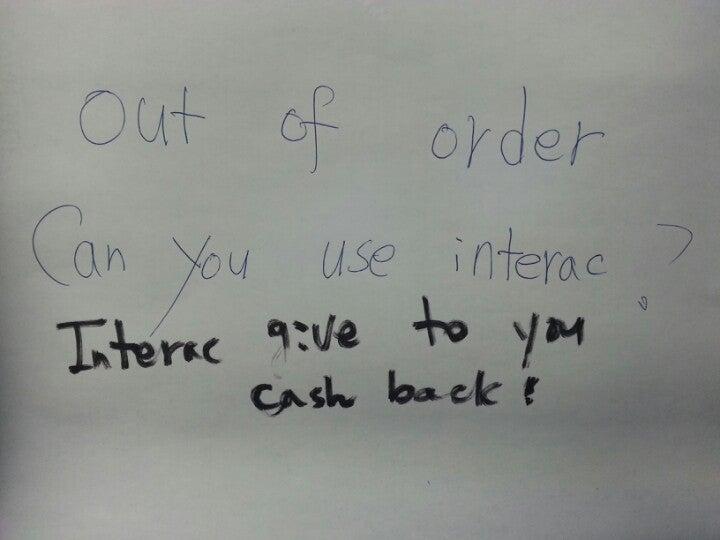 Out of order
Can you use interac ?
Interac give to you
cash back!